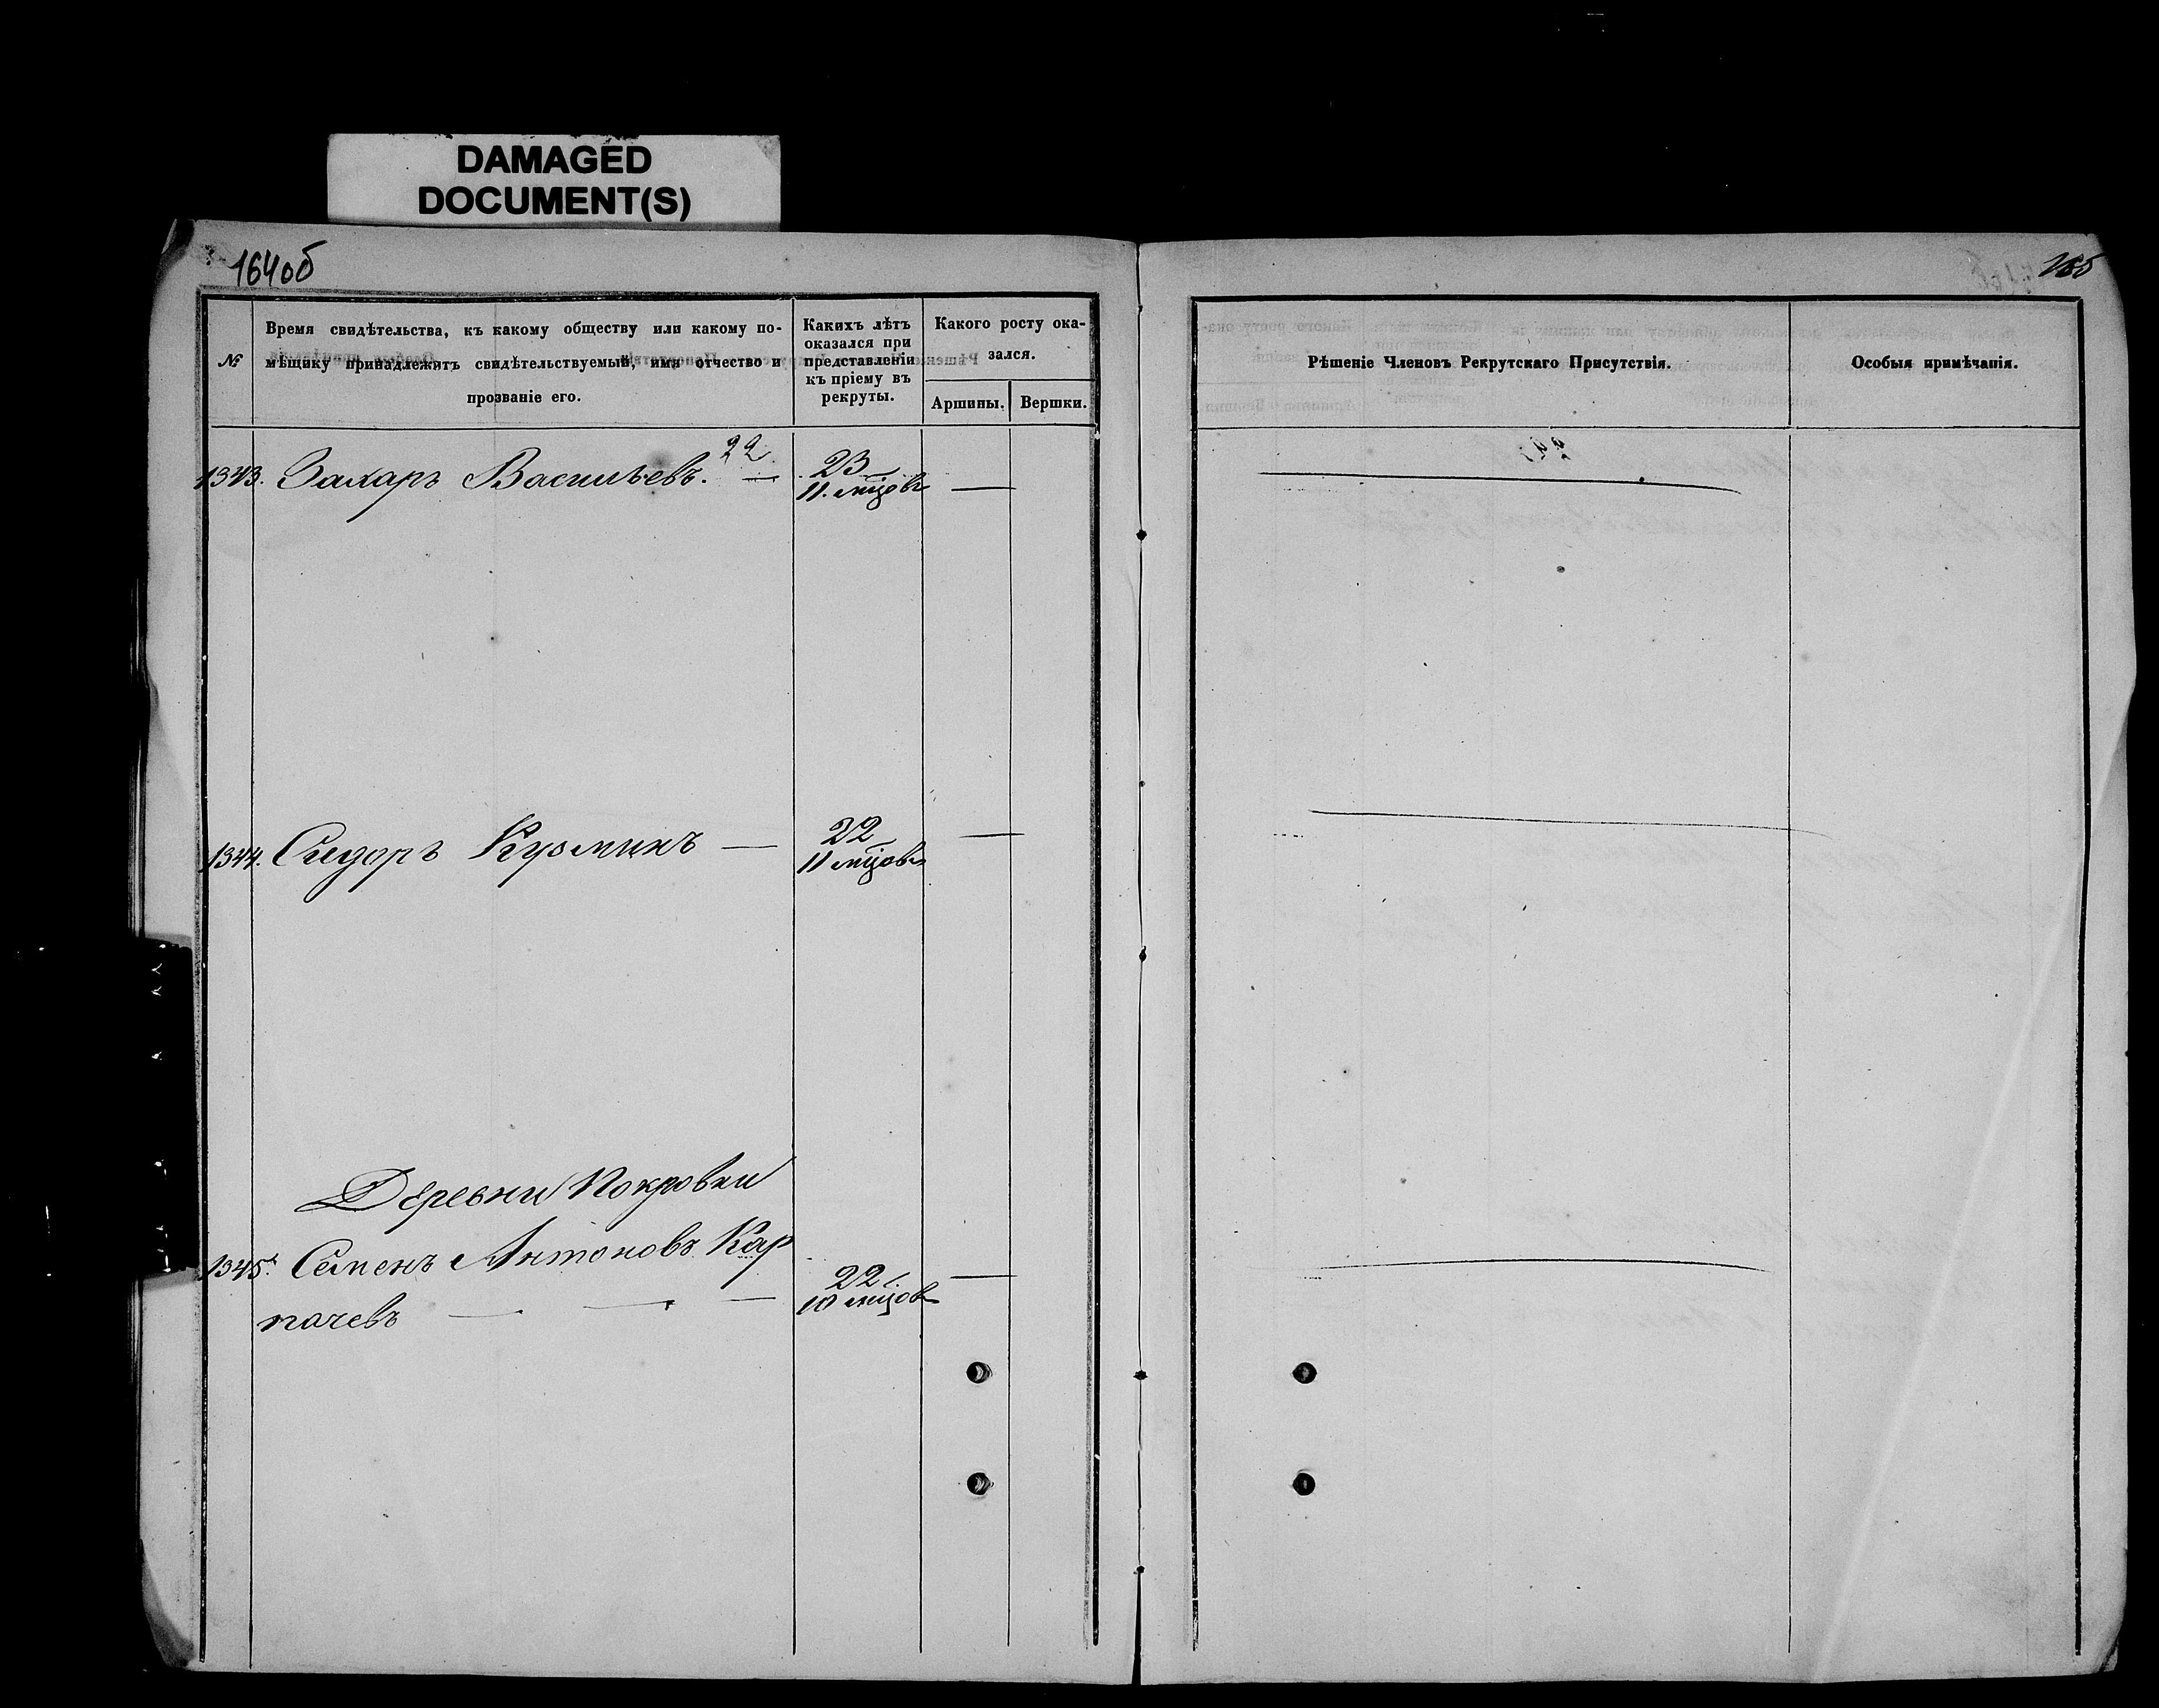 DAMAGED
DOCUMENT(S)
164об
165
№
Время свидѣтельства, къ какому обществу или какому по-
мѣщику принадлежитъ свидѣтельствуемый, имя отчество и
прозваніе его.
Какихъ лѣтъ
оказался при
представленіи
къ пріему въ
рекруты.
Какого росту ока-
зался.
Аршины.
Вершки.
Рѣшеніе Членовъ Рекрутскаго Присутствія.
Особыя примѣчанія.
22
1343. Захаръ Васильевъ. —
23
11. мцовъ
1344. Сидоръ Кузминъ —
22
11 мцовъ
Деревни Покровки
1345. Семенъ Антоновъ Кар
пачевъ — — —
22
10 мцовъ